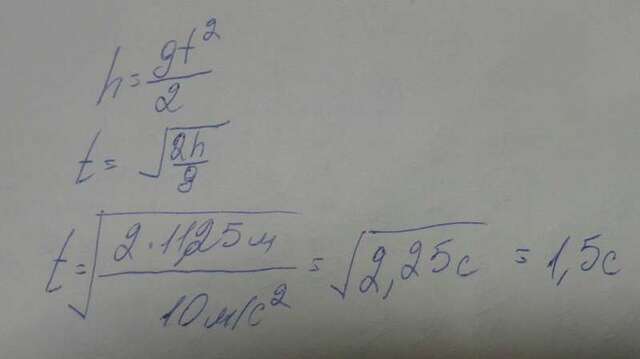 h = gt²/2
t = √(2h/g)
t = √(2·11,25м/10м/с²) = √2,25с = 1,5с